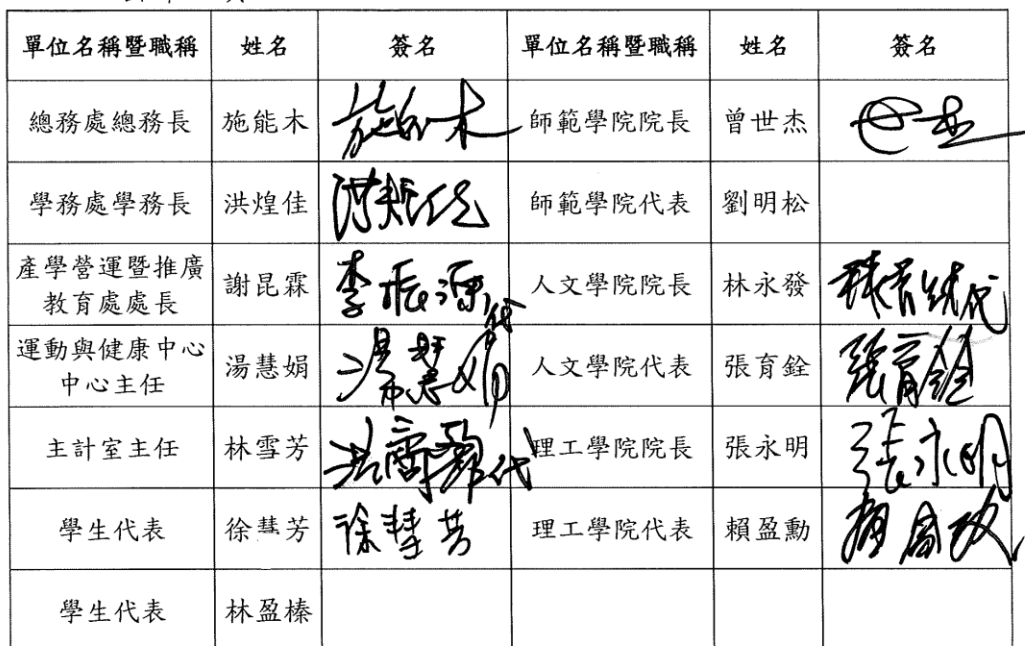 單位名稱暨職稱 姓名 簽名 單位名稱暨職稱 姓名 簽名
總務處總務長 施能木 施能木 師範學院院長 曾世杰
學務處學務長 洪煌佳 洪煌佳 師範學院代表 劉明松
產學營運暨推廣
教育處處長 謝昆霖 李振源代 人文學院院長 林永發 代
運動與健康中心
中心主任 湯慧娟 湯慧娟 人文學院代表 張育銓 張育銓
主計室主任 林雪芳 代 理工學院院長 張永明 張永明
學生代表 徐慧芳 徐慧芳 理工學院代表 賴盈勳
學生代表 林盈榛